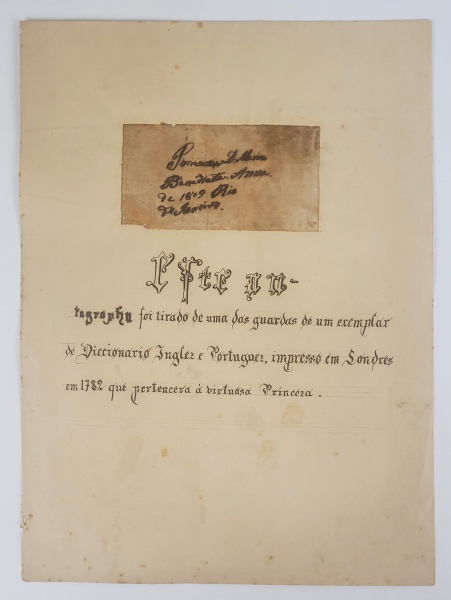 Princeza D. Maria
Benedicta. Anno
de 1809 Rio
de Janeiro.
Este au-
tographo foi tirado de uma das guardas de um exemplar
do Diccionario Inglez e Portuguez, impresso em Londres
em 1782 que pertencera à virtuosa Princeza.